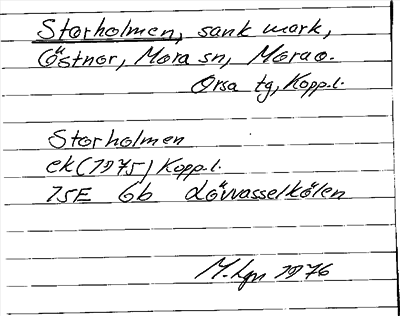 Storholmen, sank mark,
Östnor, Mora sn, Mora o.
Orsa tg, Kopp.l.
Storholmen
ek (1975) Kopp.l.
15E 6b Lövvasselkölen
M. Lgn 1976